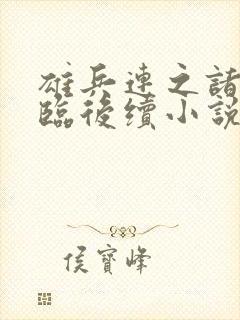 雄兵連之諸
臨後續小說
侯寶峰